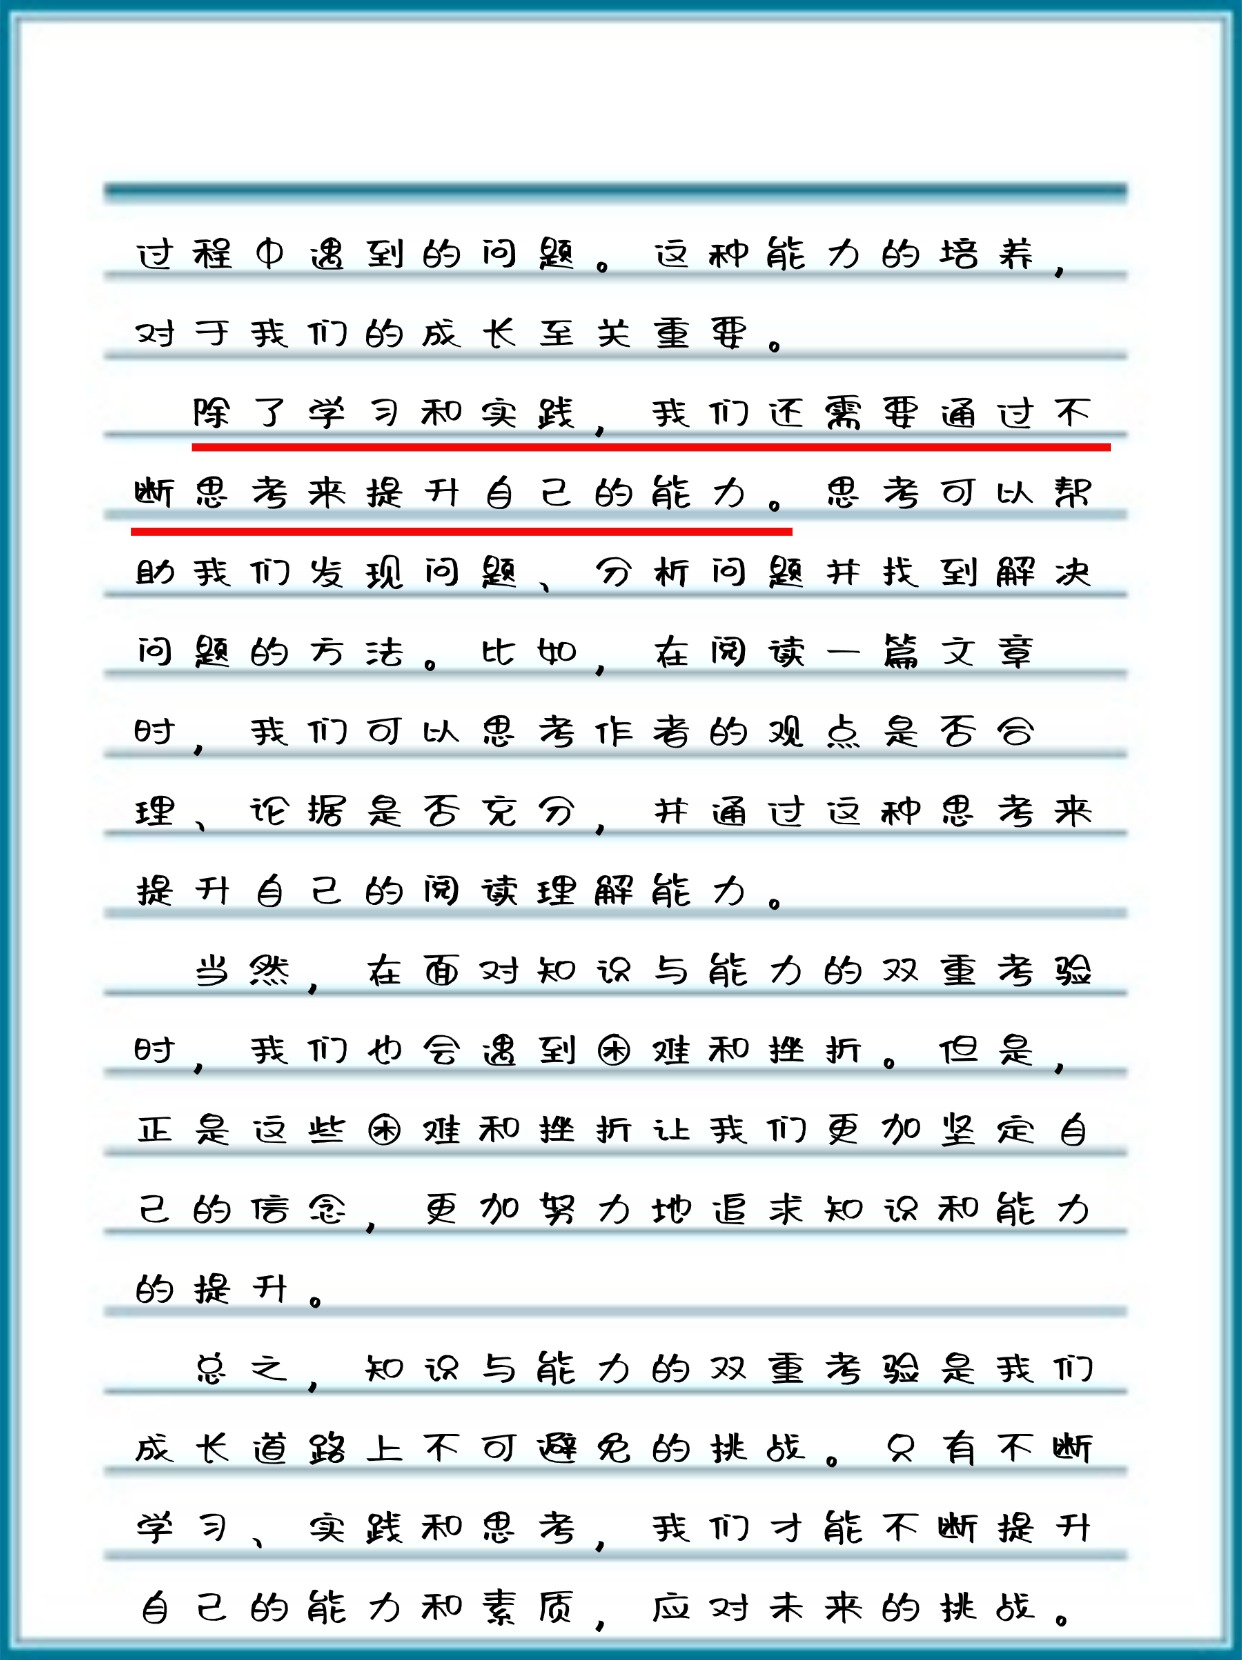 过程中遇到的问题。这种能力的培养，
对于我们的成长至关重要。
除了学习和实践，我们还需要通过不
断思考来提升自己的能力。思考可以帮
助我们发现问题、分析问题并找到解决
问题的方法。比如，在阅读一篇文章
时，我们可以思考作者的观点是否合
理、论据是否充分，并通过这种思考来
提升自己的阅读理解能力。
当然，在面对知识与能力的双重考验
时，我们也会遇到困难和挫折。但是，
正是这些困难和挫折让我们更加坚定自
己的信念，更加努力地追求知识和能力
的提升。
总之，知识与能力的双重考验是我们
成长道路上不可避免的挑战。只有不断
学习、实践和思考，我们才能不断提升
自己的能力和素质，应对未来的挑战。